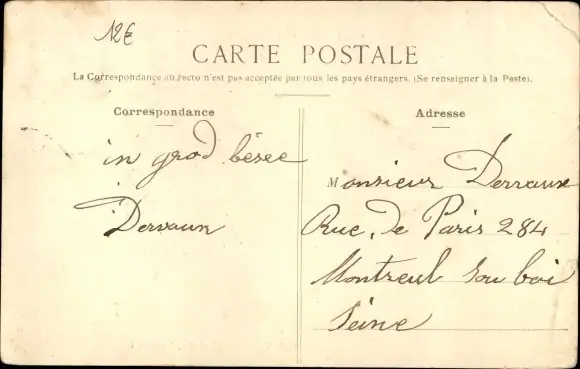 12€
CARTE POSTALE
La Correspondance au recto n'est pas acceptée par tous les pays étrangers. (Se renseigner à la Poste).
Correspondance
Adresse
in grod bésee
Dervaux
Monsieur Dervaux
Rue, de Paris 284
Montreul sou boi
Seine